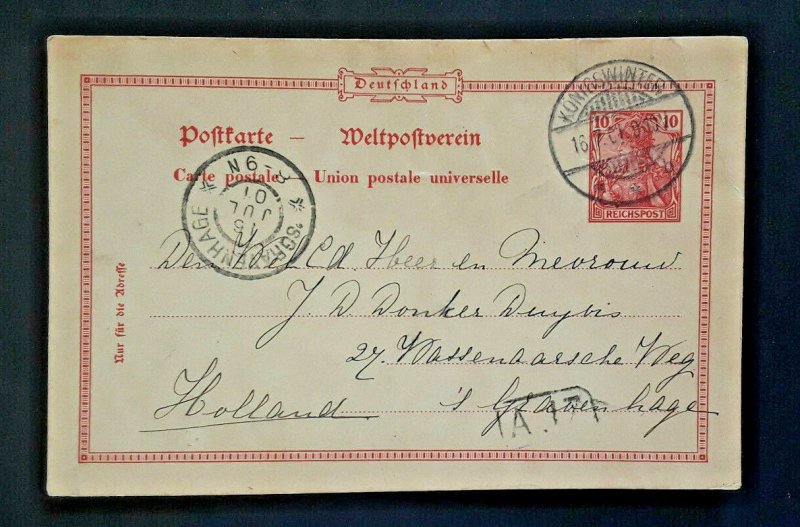 Deutschland
Postkarte — Weltpostverein
Carte postale — Union postale universelle
KÖNIGSWINTER
16.7.01.
10 10
REICHSPOST
'SGRAVENHAGE
JUL
01
8-9N
Nur für die Adresse
Den Heer en Mevrouw
J. D. Donker Duyvis
27, Wassenaarsche Weg
Holland 's Gravenhage
A 171